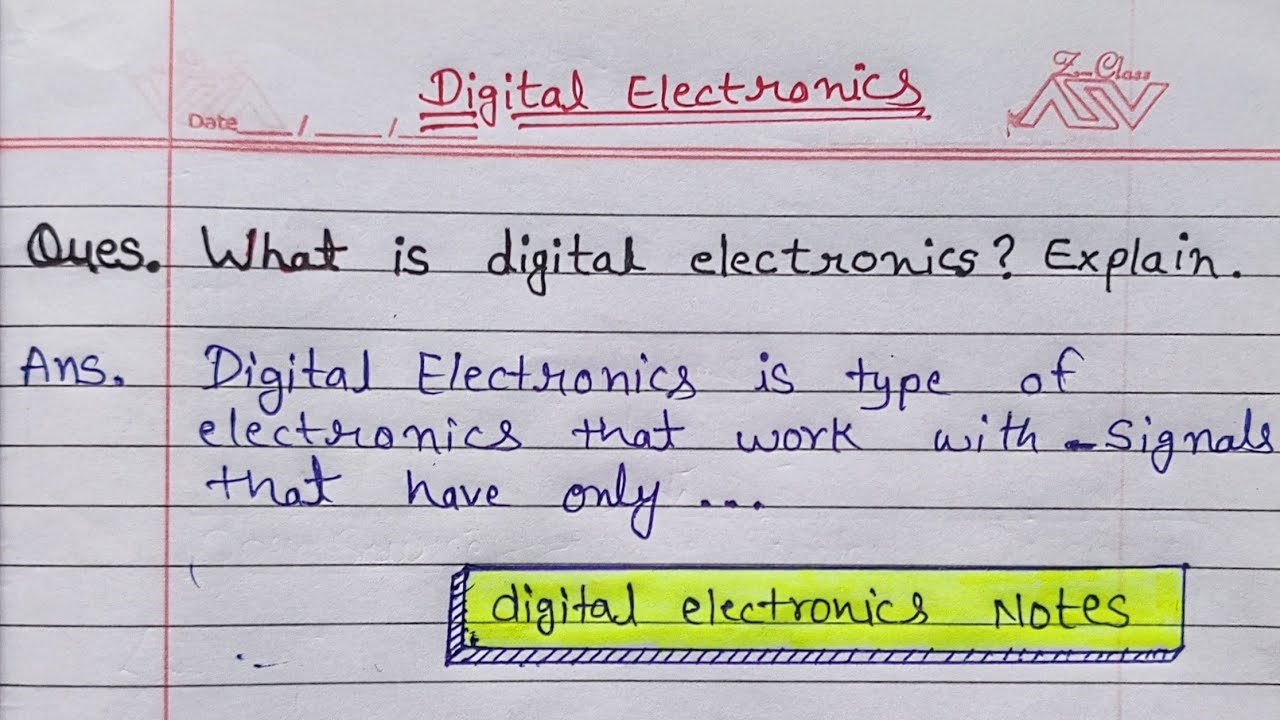 Digital Electronics
Z-Class
Date ___/___/___
Ques. What is digital electronics? Explain.
Ans. Digital Electronics is type of
electronics that work with signals
that have only ...
digital electronics Notes